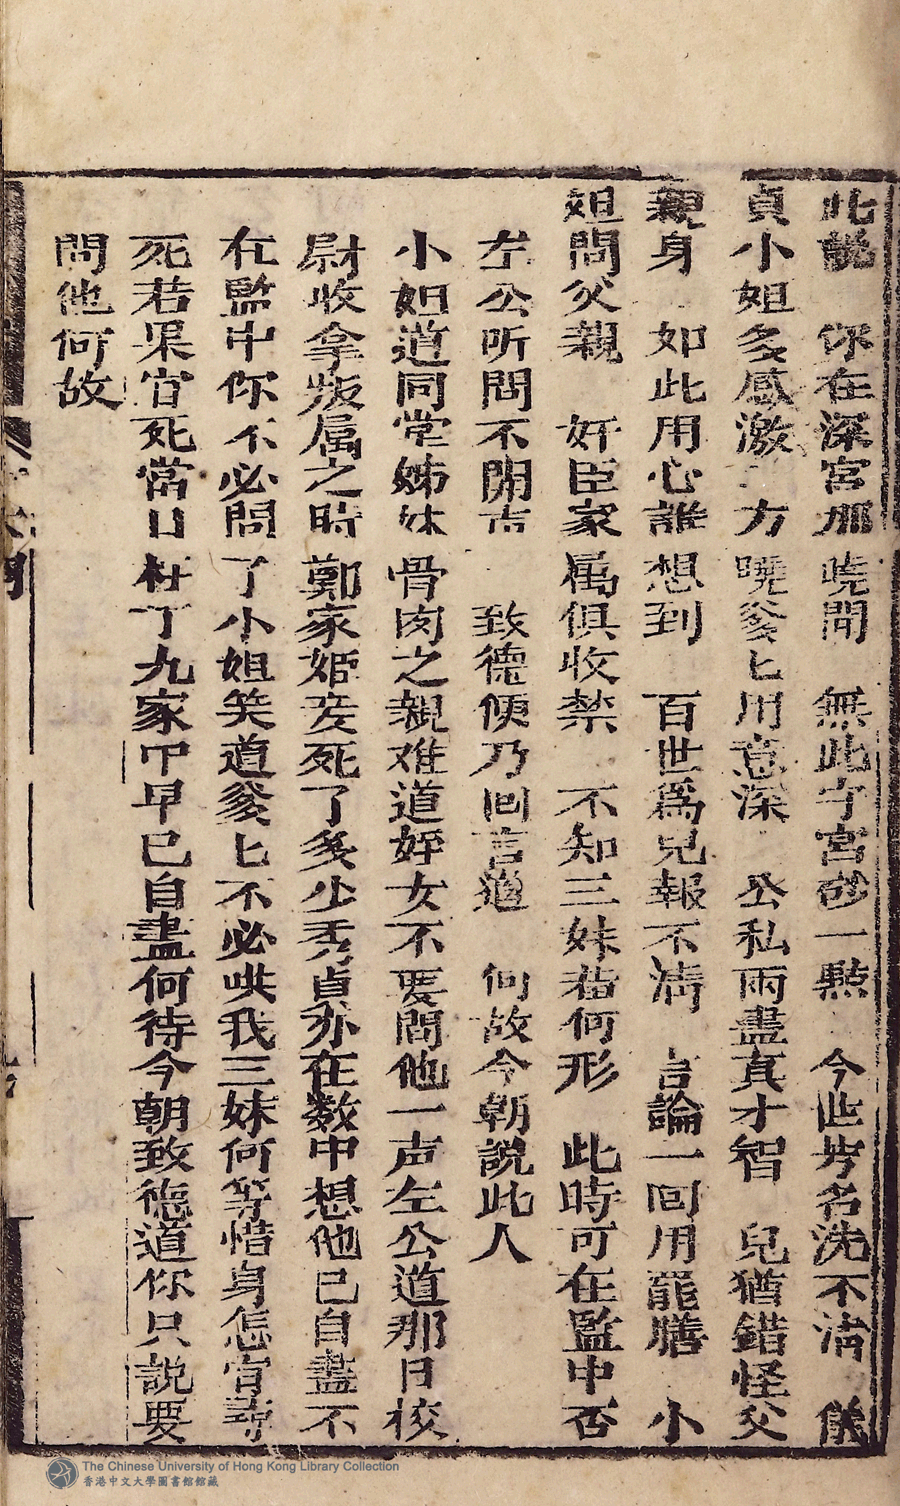 此説　你在深宮那曉聞　無此守宮砂一㸃　今世芳名洗不淸　儀
貞小姐多感激　方曉爹匕用意深　公私兩盡真才智　兒猶錯怪父
親身　如此用心誰想到　百世爲兒報不淸　言論一回用罷膳　小
姐問父親　奸臣家属俱收禁　不知三妹若何形　此時可在監中否
左公所問不開言　致德便乃回言道　何故今朝説此人
小姐道同堂姊妹骨肉之親难道姪女不要問他一声左公道那日校
尉收拿叛属之時鄭家姬妾死了多少秀貞亦在数中想他已自盡不
在監中你不必問了小姐笑道爹匕不必哄我三妹何等惜身怎肯尋
死若果肯死當日杜丁九家叩早已自盡何待今朝致德道你只説要
問他何故
The Chinese University of Hong Kong Library Collection
香港中文大學圖書館館藏